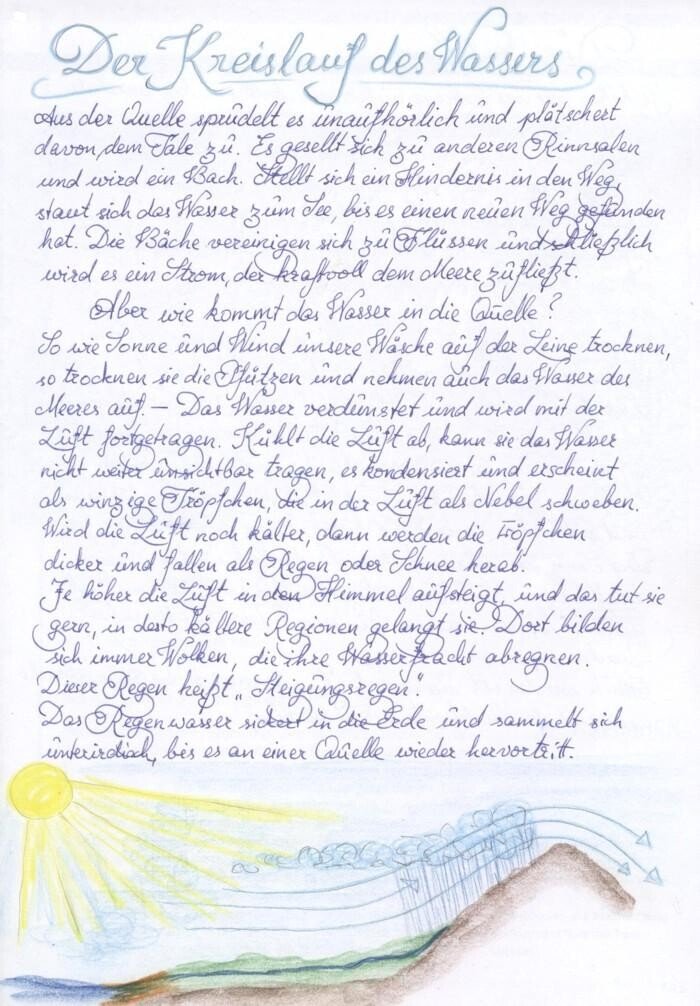 Der Kreislauf des Wassers
Aus der Quelle sprudelt es unaufhörlich und plätschert
davon, dem Tale zu. Es gesellt sich zu anderen Rinnsalen
und wird ein Bach. Stellt sich ein Hindernis in den Weg,
staut sich das Wasser zum See, bis es einen neuen Weg gefunden
hat. Die Bäche vereinigen sich zu Flüssen und schließlich
wird es ein Strom, der kraftvoll dem Meere zufließt.
Aber wie kommt das Wasser in die Quelle?
So wie Sonne und Wind unsere Wäsche auf der Leine trocknen,
so trocknen sie die Pfützen und nehmen auch das Wasser des
Meeres auf. – Das Wasser verdunstet und wird mit der
Luft fortgetragen. Kühlt die Luft ab, kann sie das Wasser
nicht weiter unsichtbar tragen, es kondensiert und erscheint
als winzige Tröpfchen, die in der Luft als Nebel schweben.
Wird die Luft noch kälter, dann werden die Tröpfchen
dicker und fallen als Regen oder Schnee herab.
Je höher die Luft in den Himmel aufsteigt, und das tut sie
gern, in desto kältere Regionen gelangt sie. Dort bilden
sich immer Wolken, die ihre Wasserfracht abregnen.
Dieser Regen heißt „Steigungsregen".
Das Regenwasser sickert in die Erde und sammelt sich
unterirdisch, bis es an einer Quelle wieder hervortritt.